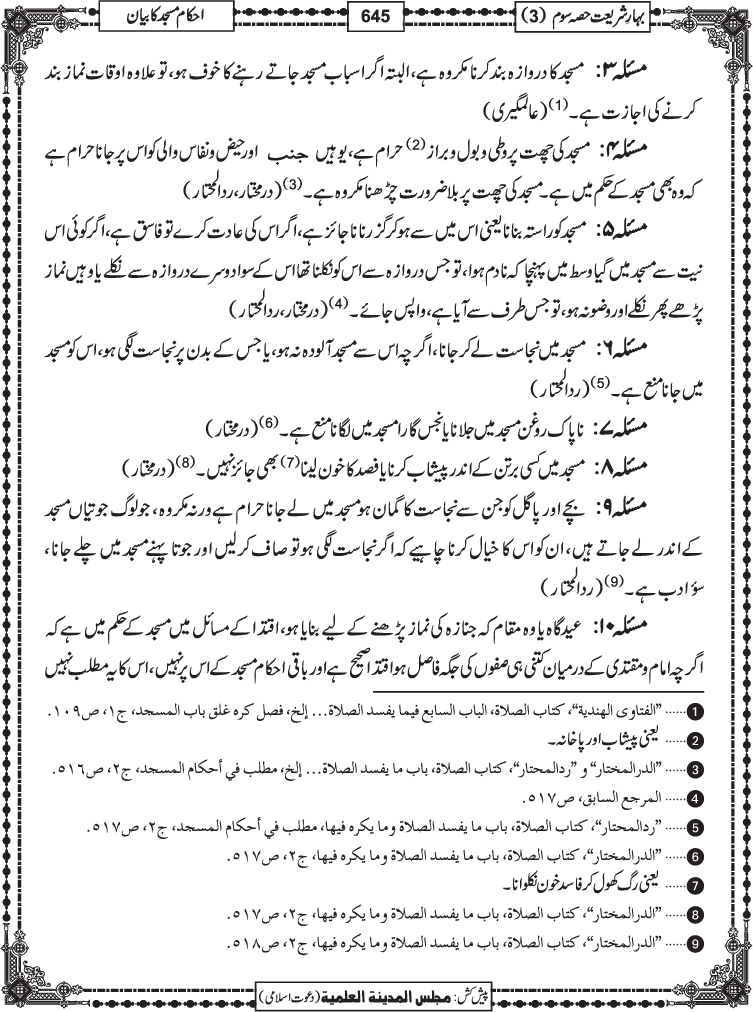 بہارِ شریعت حصہ سوم (3)
645
احکامِ مسجد کا بیان
مسئلہ ۳: مسجد کا دروازہ بند کرنا مکروہ ہے، البتہ اگر اسباب مسجد جاتے رہنے کا خوف ہو، تو علاوہ اوقات نماز بند
کرنے کی اجازت ہے۔(1) (عالمگیری)
مسئلہ ۴: مسجد کی چھت پر وطی و بول و براز(2) حرام ہے، یوہیں جنب اور حیض و نفاس والی کو اس پر جانا حرام ہے
کہ وہ بھی مسجد کے حکم میں ہے۔ مسجد کی چھت پر بلا ضرورت چڑھنا مکروہ ہے۔(3) (درمختار، ردالمحتار)
مسئلہ ۵: مسجد کو راستہ بنانا یعنی اس میں سے ہو کر گزرنا ناجائز ہے، اگر اس کی عادت کرے تو فاسق ہے، اگر کوئی اس
نیت سے مسجد میں گیا وسط میں پہنچا کہ نادم ہوا، تو جس دروازہ سے اس کو نکلنا تھا اس کے سوا دوسرے دروازہ سے نکلے یا وہیں نماز
پڑھے پھر نکلے اور وضو نہ ہو، تو جس طرف سے آیا ہے، واپس جائے۔(4) (درمختار، ردالمحتار)
مسئلہ ۶: مسجد میں نجاست لے کر جانا، اگرچہ اس سے مسجد آلودہ نہ ہو، یا جس کے بدن پر نجاست لگی ہو، اس کو مسجد
میں جانا منع ہے۔(5) (ردالمحتار)
مسئلہ ۷: ناپاک روغن مسجد میں جلانا یا نجس گارا مسجد میں لگانا منع ہے۔(6) (درمختار)
مسئلہ ۸: مسجد میں کسی برتن کے اندر پیشاب کرنا یا فصد کا خون لینا(7) بھی جائز نہیں۔(8) (درمختار)
مسئلہ ۹: بچے اور پاگل کو جن سے نجاست کا گمان ہو مسجد میں لے جانا حرام ہے ورنہ مکروہ، جو لوگ جوتیاں مسجد
کے اندر لے جاتے ہیں، ان کو اس کا خیال کرنا چاہیے کہ اگر نجاست لگی ہو تو صاف کر لیں اور جوتا پہنے مسجد میں چلے جانا،
سؤ ادب ہے۔(9) (ردالمحتار)
مسئلہ ۱۰: عیدگاہ یا وہ مقام کہ جنازہ کی نماز پڑھنے کے لیے بنایا ہو، اقتدا کے مسائل میں مسجد کے حکم میں ہے کہ
اگرچہ امام و مقتدی کے درمیان کتنی ہی صفوں کی جگہ فاصل ہو اقتدا صحیح ہے اور باقی احکام مسجد کے اس پر نہیں، اس کا یہ مطلب نہیں
1 ...... "الفتاوی الهندية"، كتاب الصلاة، الباب السابع فيما يفسد الصلاة... إلخ، فصل كره غلق باب المسجد، ج١، ص١٠٩.
2 ...... یعنی پیشاب اور پاخانہ۔
3 ...... "الدرالمختار" و "ردالمحتار"، كتاب الصلاة، باب ما يفسد الصلاة... إلخ، مطلب في أحكام المسجد، ج٢، ص٥١٦.
4 ...... المرجع السابق، ص٥١٧.
5 ...... "ردالمحتار"، كتاب الصلاة، باب ما يفسد الصلاة وما يكره فيها، مطلب في أحكام المسجد، ج٢، ص٥١٧.
6 ...... "الدرالمختار"، كتاب الصلاة، باب ما يفسد الصلاة وما يكره فيها، ج٢، ص٥١٧.
7 ...... یعنی رگ کھول کر فاسد خون نکلوانا۔
8 ...... "الدرالمختار"، كتاب الصلاة، باب ما يفسد الصلاة وما يكره فيها، ج٢، ص٥١٧.
9 ...... "الدرالمختار"، كتاب الصلاة، باب ما يفسد الصلاة وما يكره فيها، ج٢، ص٥١٨.
پیش کش: مجلس المدينة العلمية (دعوت اسلامی)